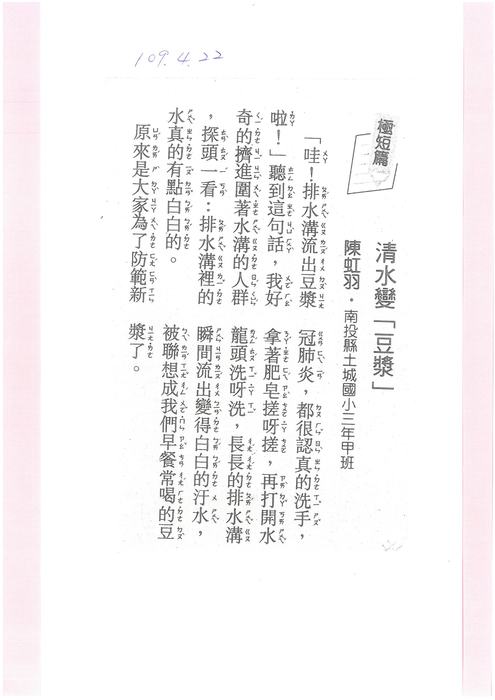 109.4.22
極短篇
清水變「豆漿」
陳虹羽‧南投縣土城國小三年甲班
「哇！排水溝流出豆漿
啦！」聽到這句話，我好
奇的擠進圍著水溝的人群
，探頭一看：排水溝裡的
水真的有點白白的。
原來是大家為了防範新
冠肺炎，都很認真的洗手，
拿著肥皂搓呀搓，再打開水
龍頭洗呀洗，長長的排水溝
瞬間流出變得白白的汙水，
被聯想成我們早餐常喝的豆
漿了。